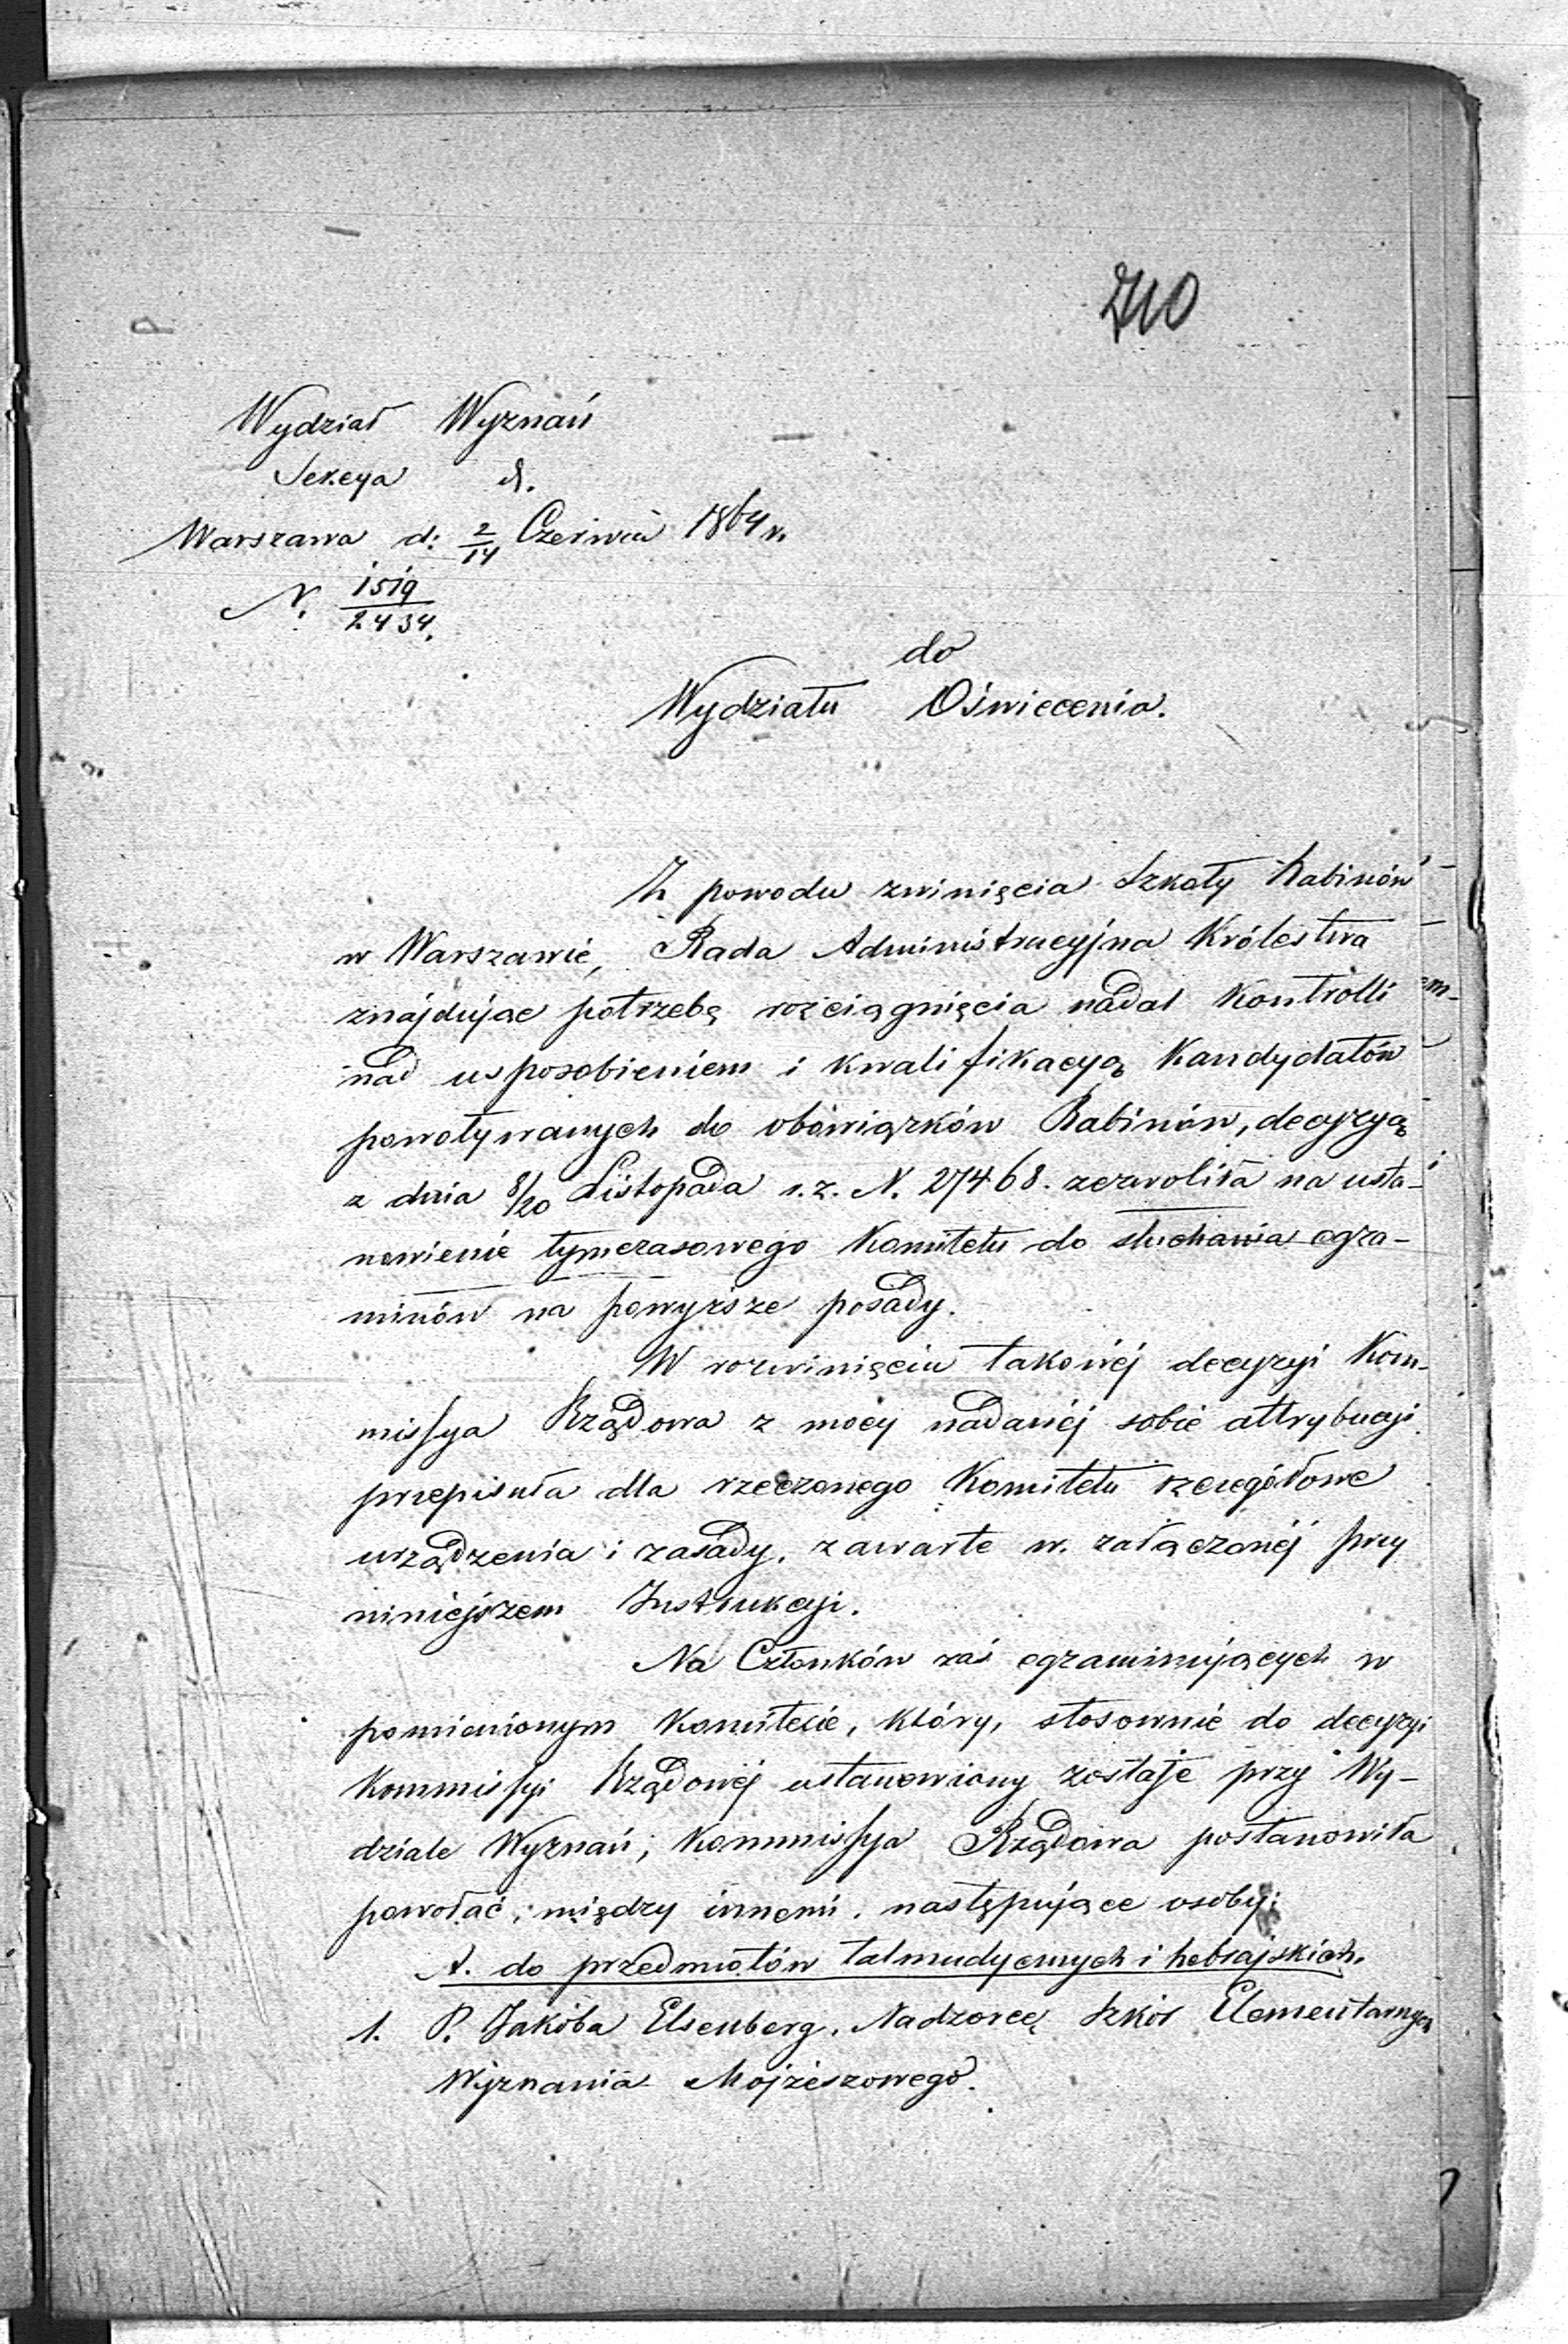 240
Wydział Wyznań
Sekcya
Warszawa d: 2/14 Czerwca 1864 r.
N. 1519/2434.
do
Wydziału Oświecenia.
Z powodu zwinięcia Szkoły Rabinów
w Warszawie, Rada Administracyjna Królestwa
znajdując potrzebę rozciągnięcia nadal Kontrolli
nad usposobieniem i kwalifikacyą Kandydatów
powoływanych do obowiązków Rabinów, decyzyą
z dnia 8/20 Listopada r. z. N. 27468. zezwoliła na usta-
nowienie tymczasowego Komitetu do słuchania egza-
minów na powyższe posady.
W rozwinięciu takowéj decyzyi Kom-
missya Rządowa z mocy nadanéj sobie attrybucyi
przepisała dla rzeczonego Komitetu szczegółowe
urządzenia i zasady, zawarte w załączonéj przy
niniejszem Instrukcyi.
Na Członków zaś egzaminujących w
pomienionym Komitecie, który, stosownie do decyzyi
Kommissyi Rządowéj ustanowiony zostaje przy Wy-
dziale Wyznań; Kommissya Rządowa postanowiła
powołać, między innemi, następujące osoby:
A. do przedmiotów talmudycznych i hebrajskich.
1. P. Jakóba Elsenberg, Nadzorcę Szkół Elementarnych
Wyznania Mojżeszowego.